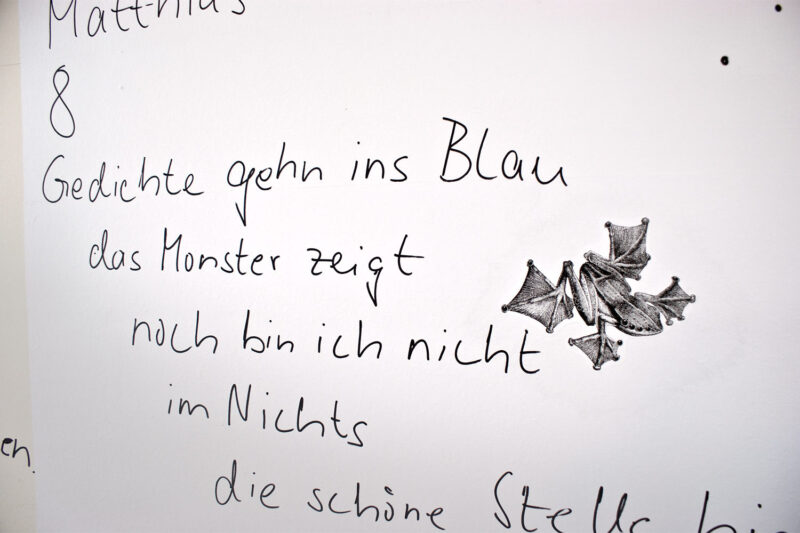 Matthias
8
Gedichte gehn ins Blau
das Monster zeigt
noch bin ich nicht
im Nichts
en.
die schöne Stelle